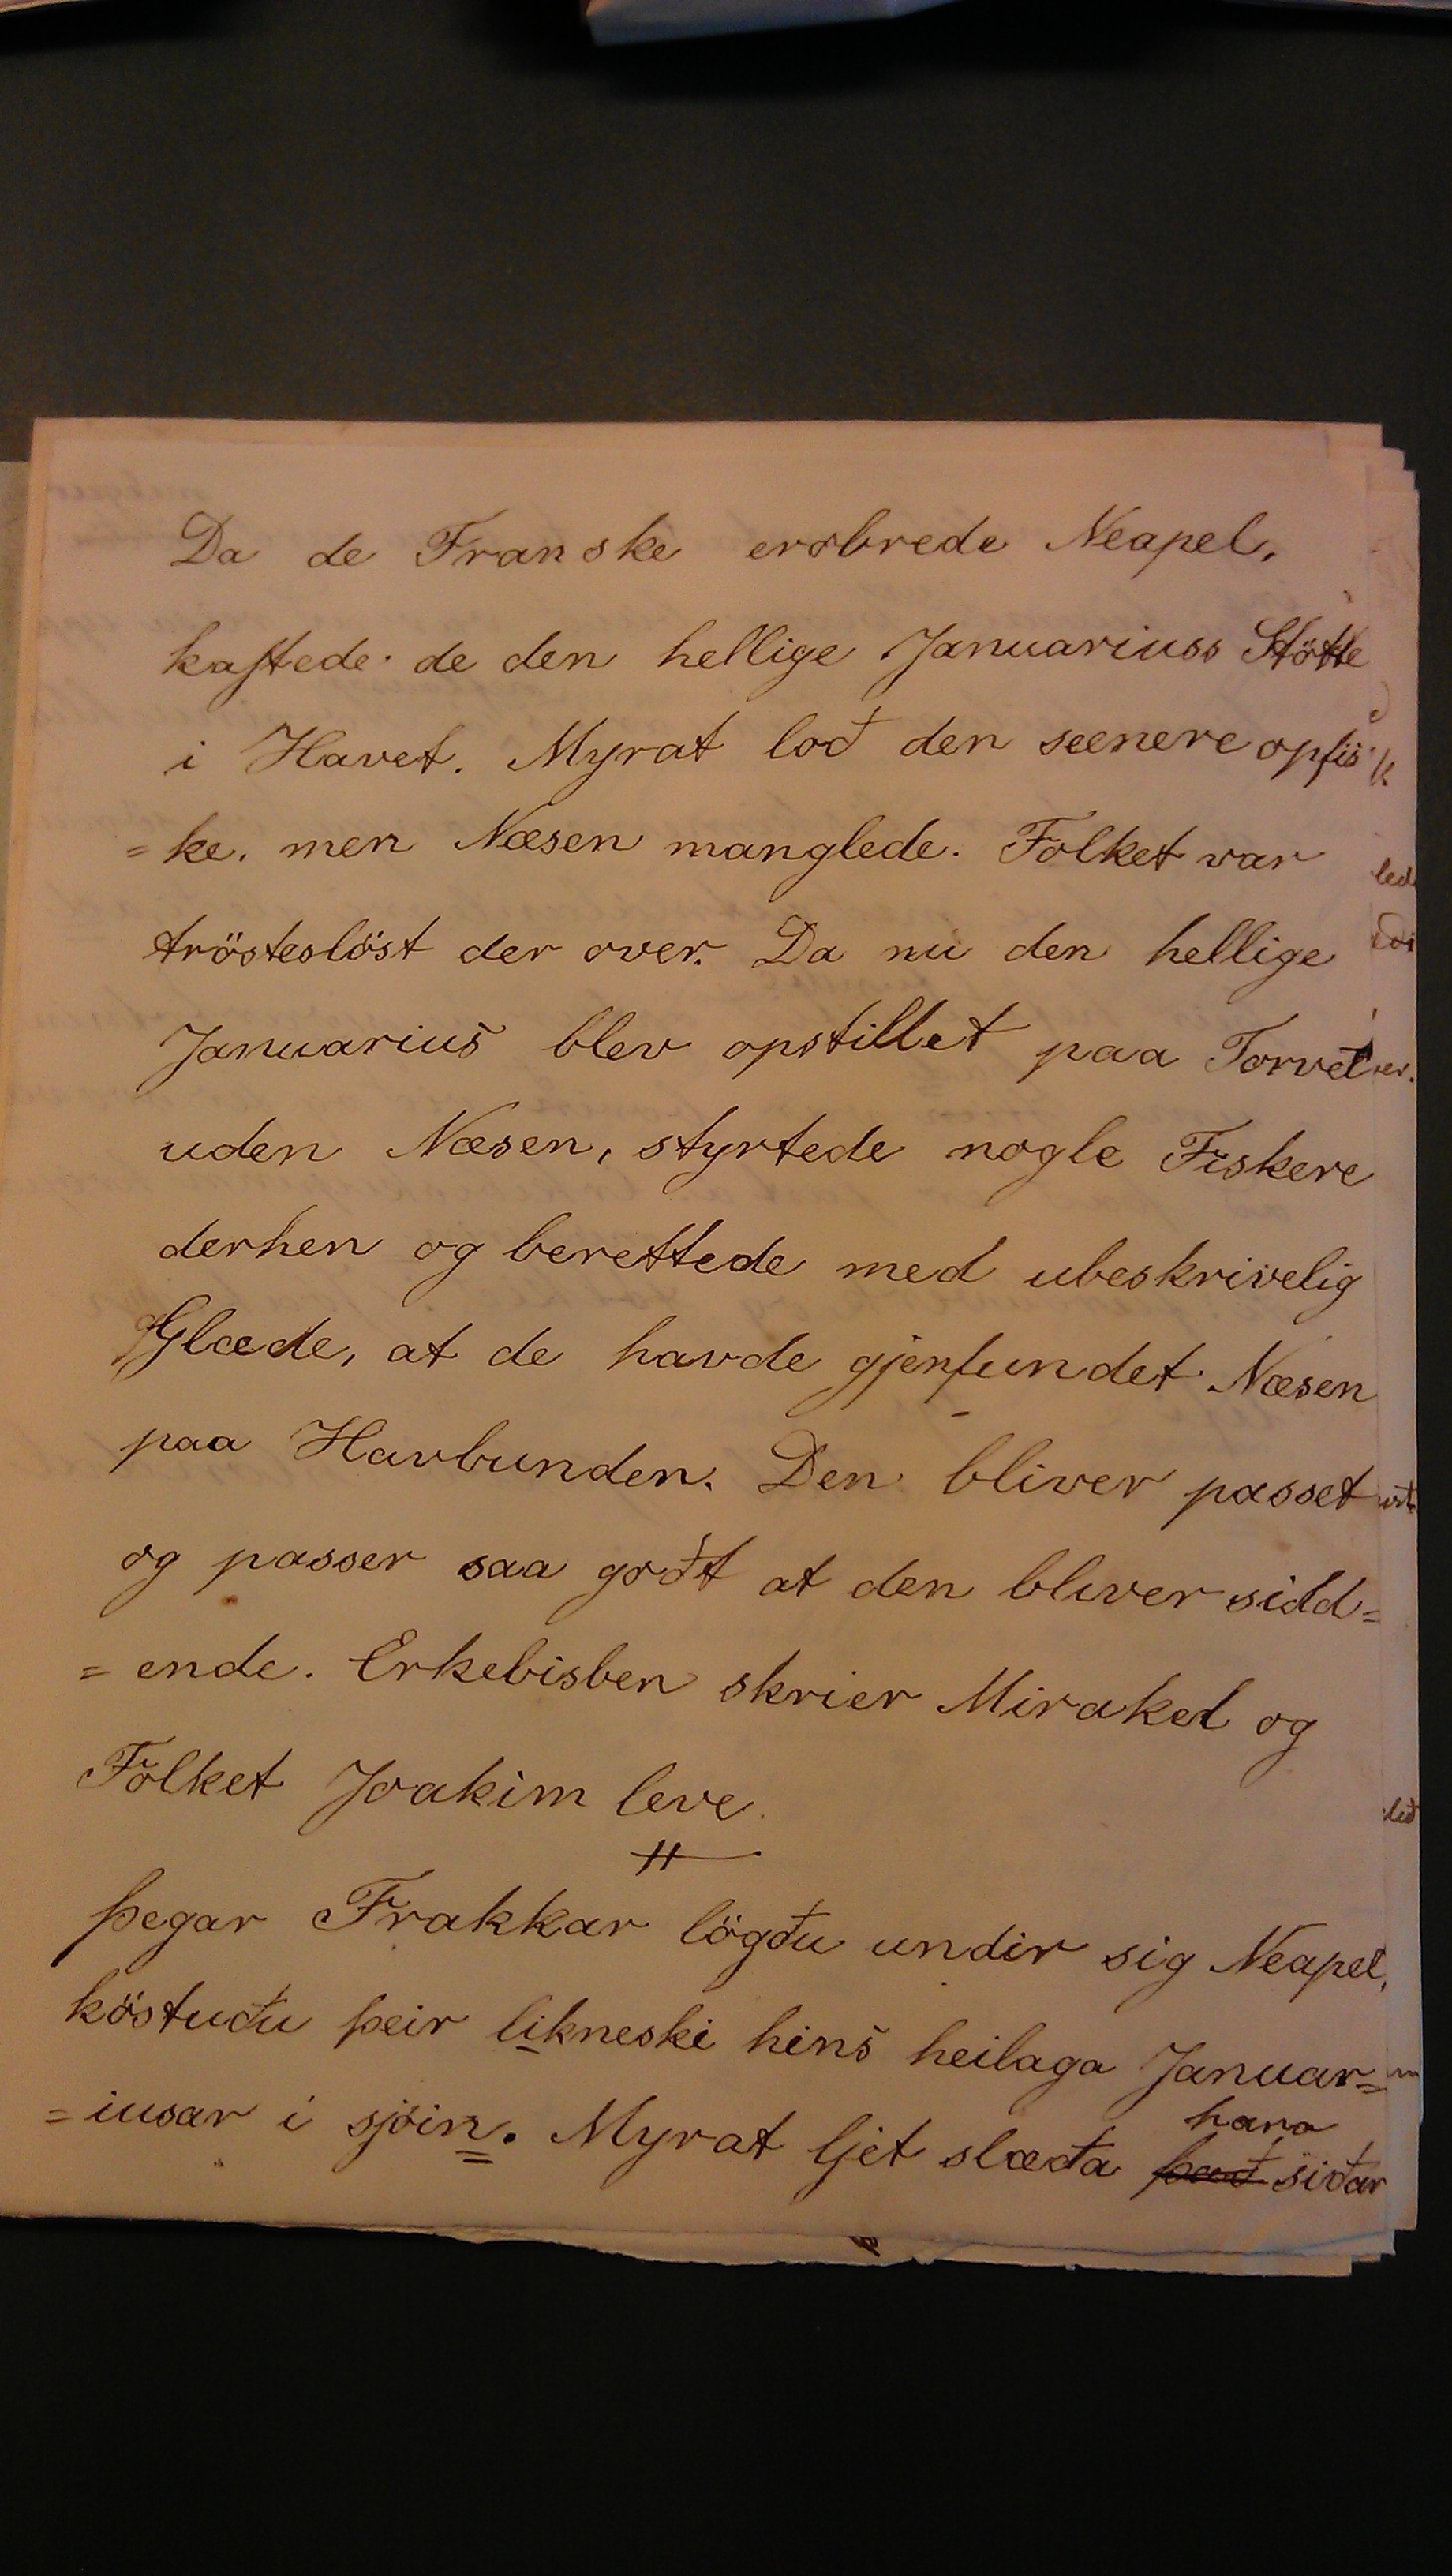 Da de Franske erobrede Neapel,
kastede de den hellige Januariuss Stötte
i Havet. Myrat lod den seenere opfis
=ke, men Næsen manglede. Folket var
trösteslöst der over. Da nu den hellige
Januarius blev opstillet paa Torvet
uden Næsen, styrtede nogle Fiskere
derhen og berettede med ubeskrivelig
Glæde, at de havde gjenfundet Næsen
paa Havbunden. Den bliver passet
og passer saa godt at den bliver sidd=
=ende. Erkebisben skrier Mirakel og
Folket Joakim leve.
þegar Frakkar lögðu undir sig Neapel,
köstuðu þeir likneski hins heilaga Januar=
hana
=iusar i sjóin. Myrat ljet slæða það siðar